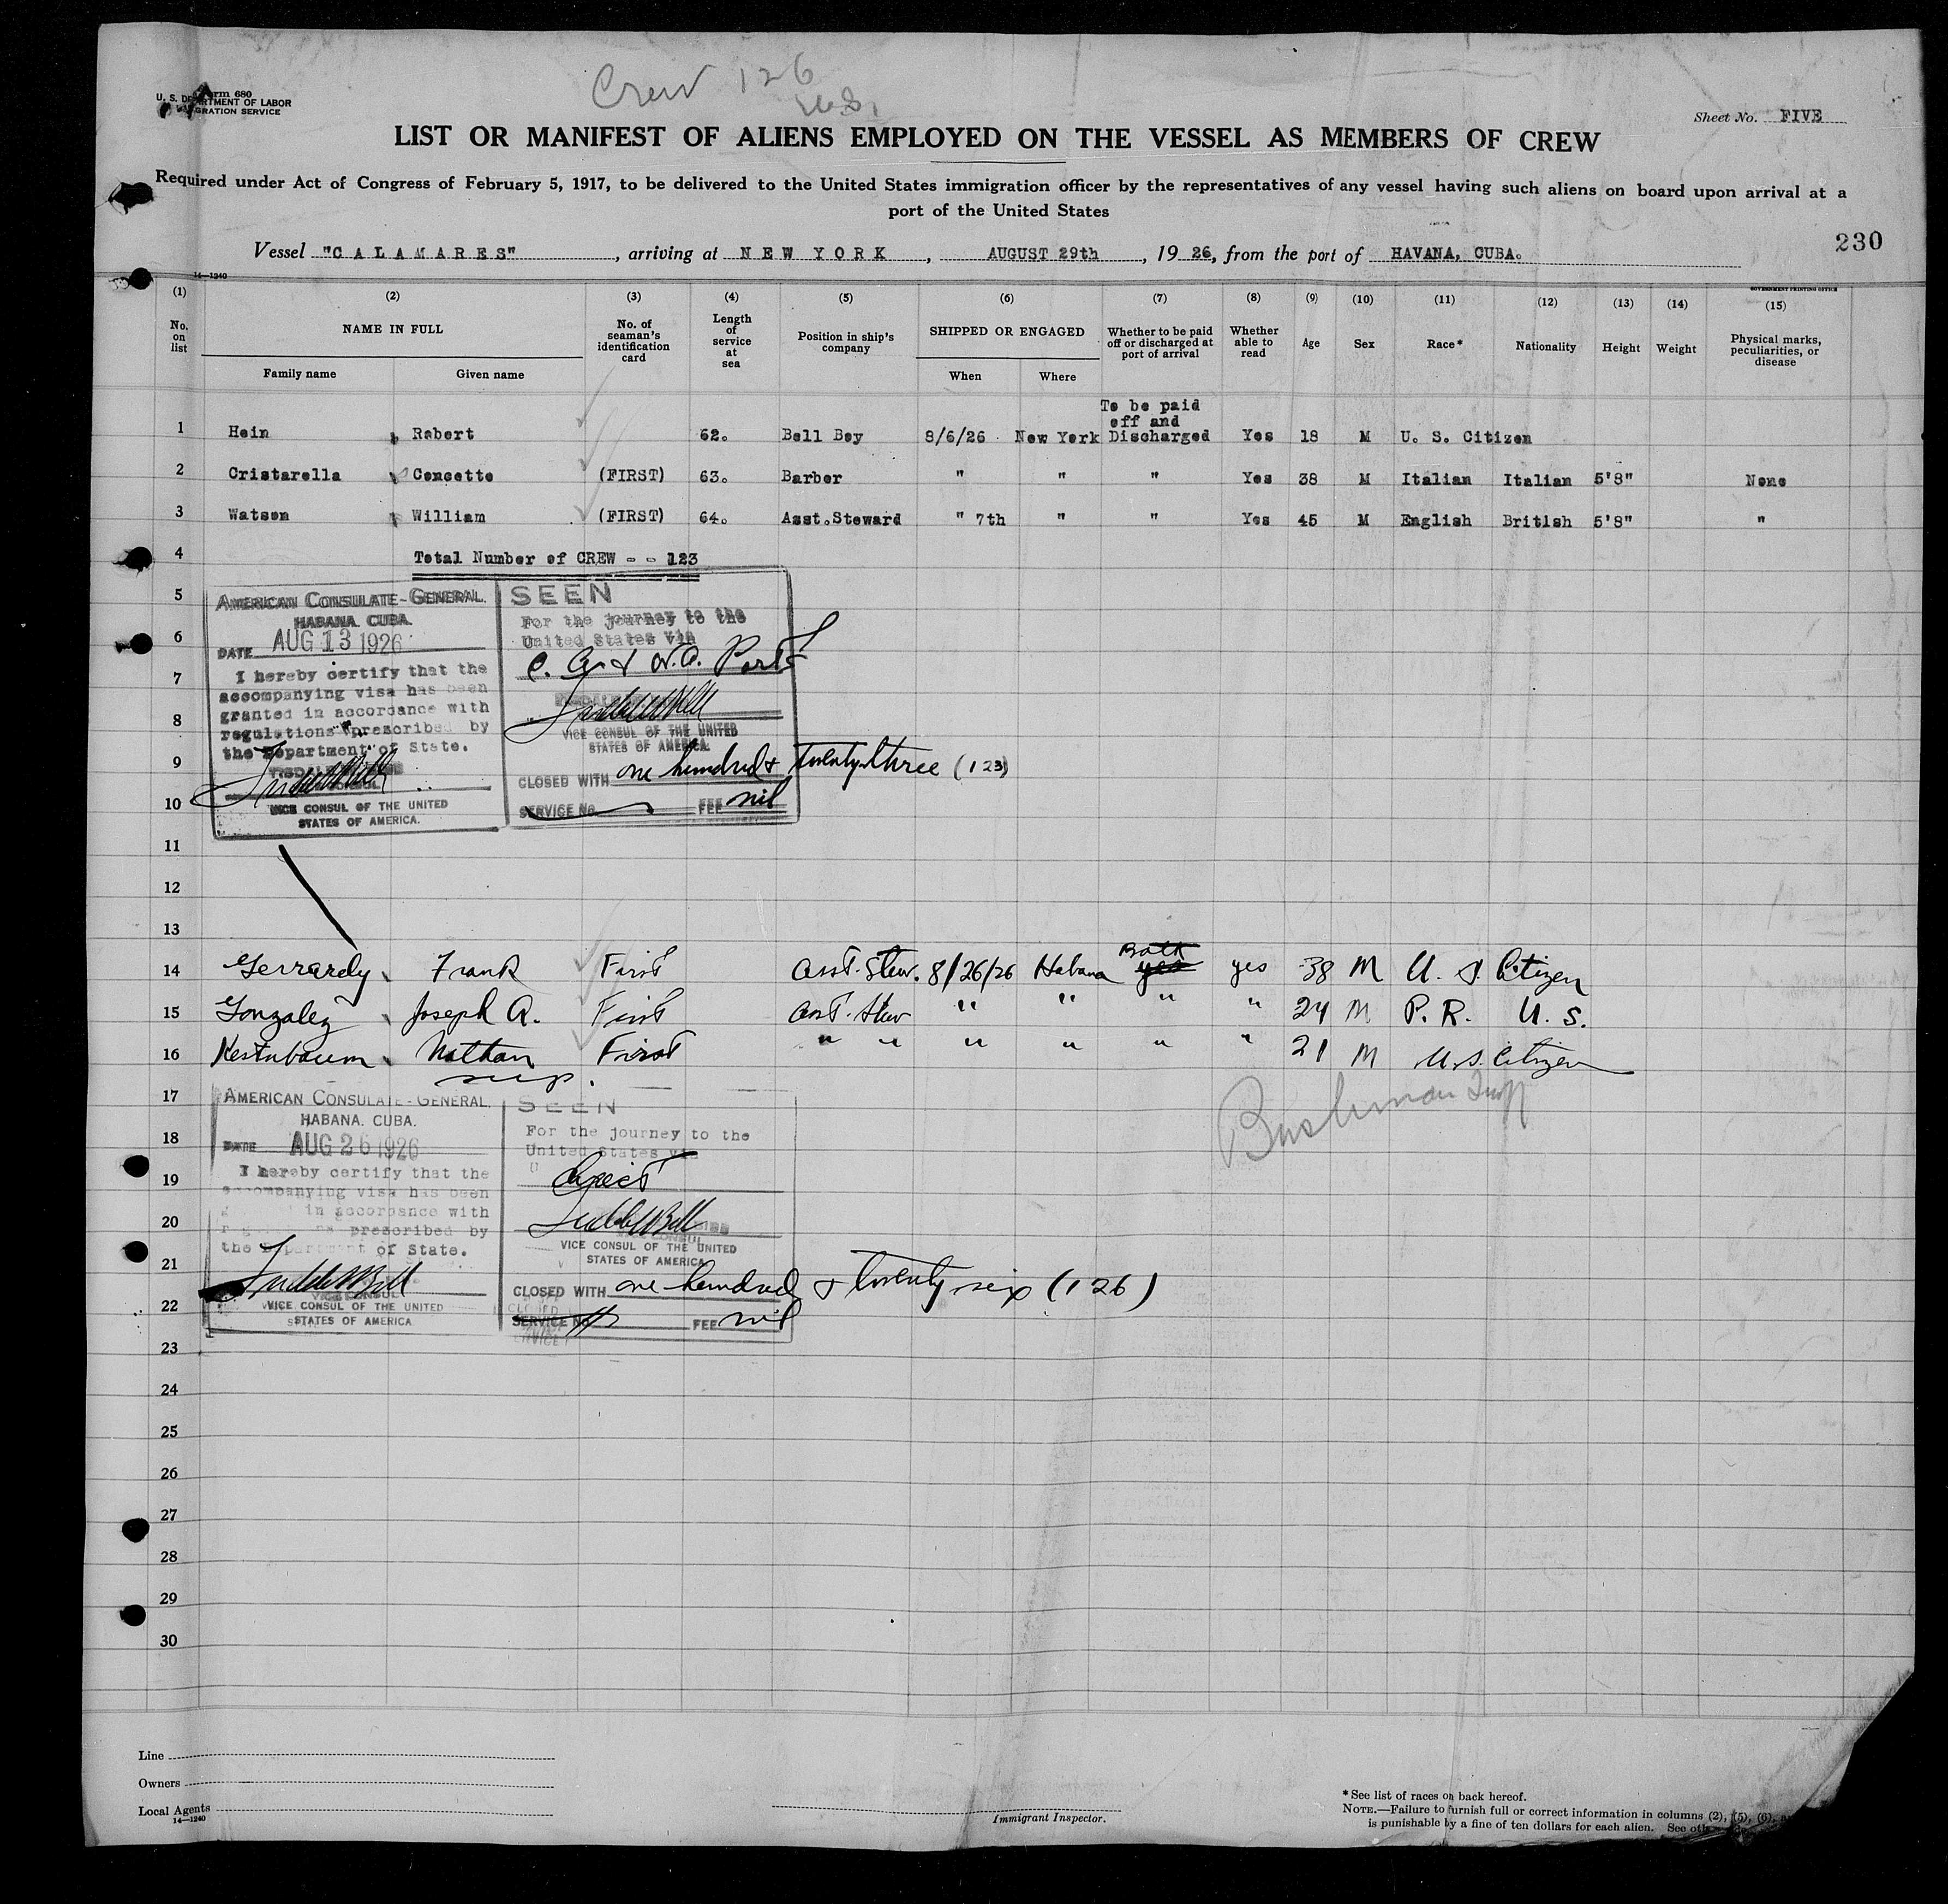 Crew 126
U.S.
Form 680
U. S. DEPARTMENT OF LABOR
IMMIGRATION SERVICE
Sheet No. FIVE
LIST OR MANIFEST OF ALIENS EMPLOYED ON THE VESSEL AS MEMBERS OF CREW
Required under Act of Congress of February 5, 1917, to be delivered to the United States immigration officer by the representatives of any vessel having such aliens on board upon arrival at a
port of the United States
230
Vessel "CALAMARES", arriving at NEW YORK, AUGUST 29th, 1926, from the port of HAVANA, CUBA.
14—1240
GOVERNMENT PRINTING OFFICE
(1) (2) (3) (4) (5) (6) (7) (8) (9) (10) (11) (12) (13) (14) (15)
No. on list NAME IN FULL No. of seaman's identification card Length of service at sea Position in ship's company SHIPPED OR ENGAGED Whether to be paid off or discharged at port of arrival Whether able to read Age Sex Race* Nationality Height Weight Physical marks, peculiarities, or disease
Family name Given name When Where
To be paid
off and
1 Hein Robert 62. Bell Boy 8/6/26 New York Discharged Yes 18 M U. S. Citizen
2 Cristarella Concetto (FIRST) 63. Barber " " " Yes 38 M Italian Italian 5'8" None
3 Watson William (FIRST) 64. Asst.Steward " 7th " " Yes 45 M English British 5'8" "
4 Total Number of CREW - - 123
5
6
7
8
9
10
AMERICAN CONSULATE-GENERAL.
HABANA. CUBA.
DATE AUG 13 1926
I hereby certify that the
accompanying visa has been
granted in accordance with
regulations prescribed by
the Department of State.
VICE CONSUL OF THE UNITED
STATES OF AMERICA.
SEEN
For the journey to the
United States via
VICE CONSUL OF THE UNITED
STATES OF AMERICA.
CLOSED WITH one hundred & twenty three (123)
SERVICE No. FEE nil
11
12
13
Both
14 Gerrardy, Frank First Asst. Stew. 8/26/26 Habana yes yes 38 M U. S. Citizen
15 Gonzalez, Joseph A. First Asst. Stew " " " " 24 M P. R. U. S.
16 Kestnbaum, Nathan First " " " " " " 21 M U. S. Citizen
sup.
Bushman Insp
17
18
19
20
21
22
AMERICAN CONSULATE-GENERAL.
HABANA. CUBA.
DATE AUG 26 1926
I hereby certify that the
accompanying visa has been
in accordance with
prescribed by
the Department of State.
VICE CONSUL OF THE UNITED
STATES OF AMERICA
SEEN
For the journey to the
United States via
direct
VICE CONSUL OF THE UNITED
STATES OF AMERICA
CLOSED WITH one hundred & twenty six (126)
SERVICE No. FEE nil
23
24
25
26
27
28
29
30
Line
Owners
Local Agents
14—1240
Immigrant Inspector.
* See list of races on back hereof.
NOTE.—Failure to furnish full or correct information in columns (2), (5), (6),
is punishable by a fine of ten dollars for each alien. See